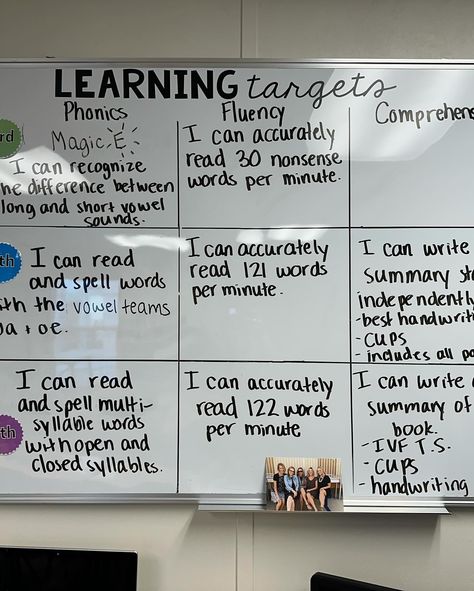 LEARNING targets
Phonics
Fluency
Comprehens
rd
Magic E
I can recognize
the difference between
long and short vowel
sounds.
I can accurately
read 30 nonsense
words per minute.
th
I can read
and spell words
with the vowel teams
oa + oe.
I can accurately
read 121 words
per minute.
I can write
summary st
independently
- best handwriti
- CUPS
- includes all pa
th
I can read
and spell multi-
syllable words
with open and
closed syllables.
I can accurately
read 122 words
per minute
I can write a
summary of
book.
- IVF T.S.
- CUPS
- handwriting